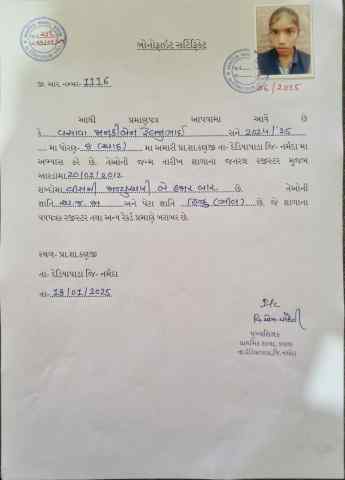 બોનોફાઈટ સર્ટિફિકેટ
જી આર નંબર- 1116
આથી પ્રમાણપત્ર આપવામા આવે
કે વસાવા રેહનુભાઈ સને 2024/25
મા ધોરણ- ૭ (સાત) , મા અમારી પ્રા.શા.કણજી તા- દેડિયાપાડા જિ- નર્મદા મા
અભ્યાસ કરે છે. તેઓની જન્મ તારીખ શાળાના જનરલ રજીસ્ટર મુજબ
આંકડામા 20/02/2012
શબ્દોમા વીસમી ફેબ્રુઆરી બે હજાર બાર છે. તેઓની
જાતિ અ.જ.જા અને પેટા જાતિ હિન્દુ (ભીલ) છે, જે શાળાના
વયપત્રક રજીસ્ટર તથા અન્ય રેકર્ડ પ્રમાણે બરાબર છે.
સ્થળ- પ્રા.શા.કણજી
તા- દેડિયાપાડા જિ- નર્મદા
તા- 18/01/2025
મુખ્યશિક્ષક
પ્રાથમિક શાળા, કણજી
તા.દેડિયાપાડા, જિ.નર્મદા
06/2025